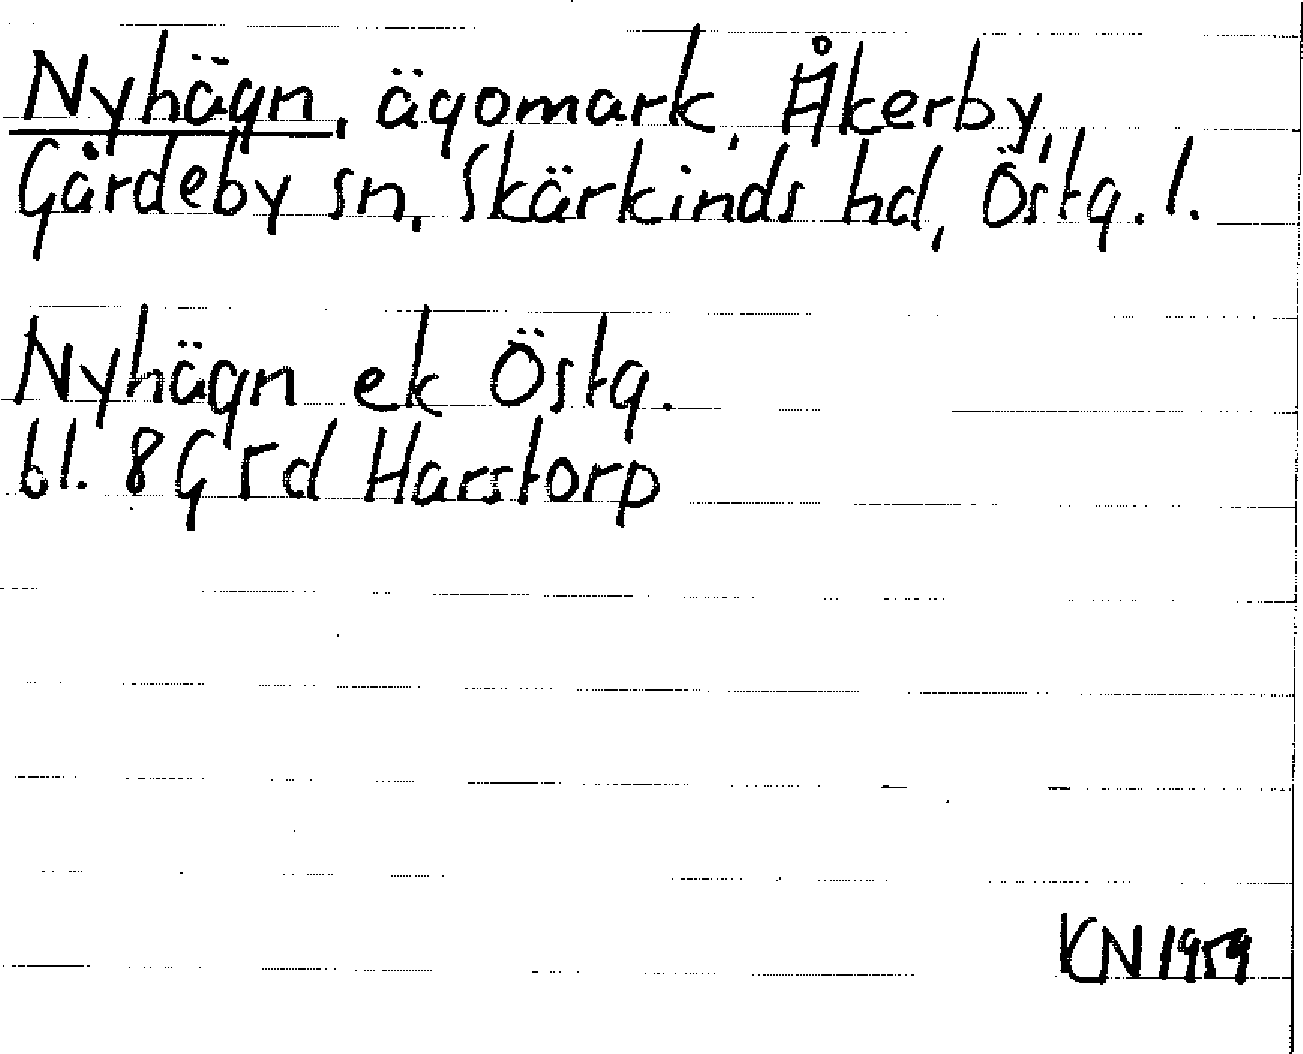 Nyhägn, ägomark, Åkerby,
Gårdeby sn, Skärkinds hd, Östg. l.
Nyhägn ek Östg.
bl. 8G5d Harstorp
KN 1959